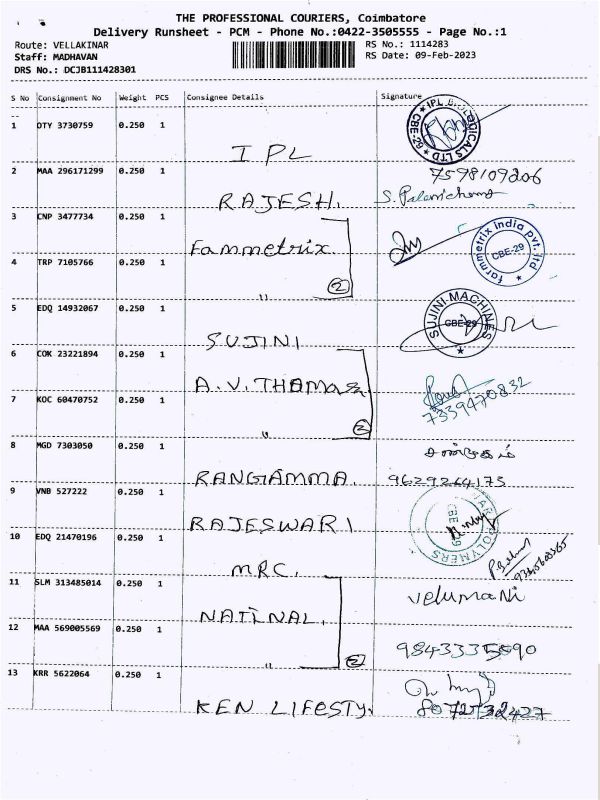 THE PROFESSIONAL COURIERS, Coimbatore
Delivery Runsheet - PCM - Phone No.:0422-3505555 - Page No.:1
Route: VELLAKINAR
RS No.: 1114283
Staff: MADHAVAN
RS Date: 09-Feb-2023
DRS No.: DCJB111428301
S No Consignment No Weight PCS Consignee Details Signature
1 OTY 3730759 0.250 1 IPL
IPL BIOLOGICALS LTD CBE-29
2 MAA 296171299 0.250 1 RAJESH.
7598109206
3 CNP 3477734 0.250 1 Fammetrix
farmmetrix India pvt. ltd CBE-29
4 TRP 7105766 0.250 1 " 2
5 EDQ 14932067 0.250 1 SUJINI
SUJINI MACHINES CBE-29
6 COK 23221894 0.250 1 A.V. THAMAS
7339470832
7 KOC 60470752 0.250 1 " 2
8 MGD 7303050 0.250 1 RANGAMMA.
9629264175
9 VNB 527222 0.250 1 RAJESWARI
POLYMERS CBE
10 EDQ 21470196 0.250 1 MRC.
11 SLM 313485014 0.250 1 NATINAL.
VelumaNi
12 MAA 569005569 0.250 1 " 2
9843335590
13 KRR 5622064 0.250 1 KEN LIFESTY.
8072732427